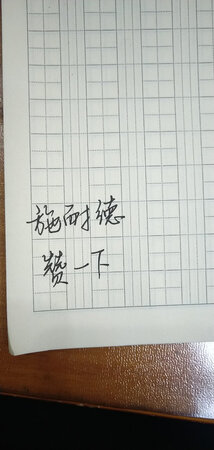 施耐德
赞一下